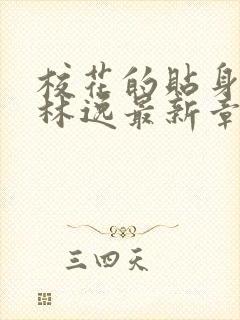 校花的贴身
林逸最新章
三四天